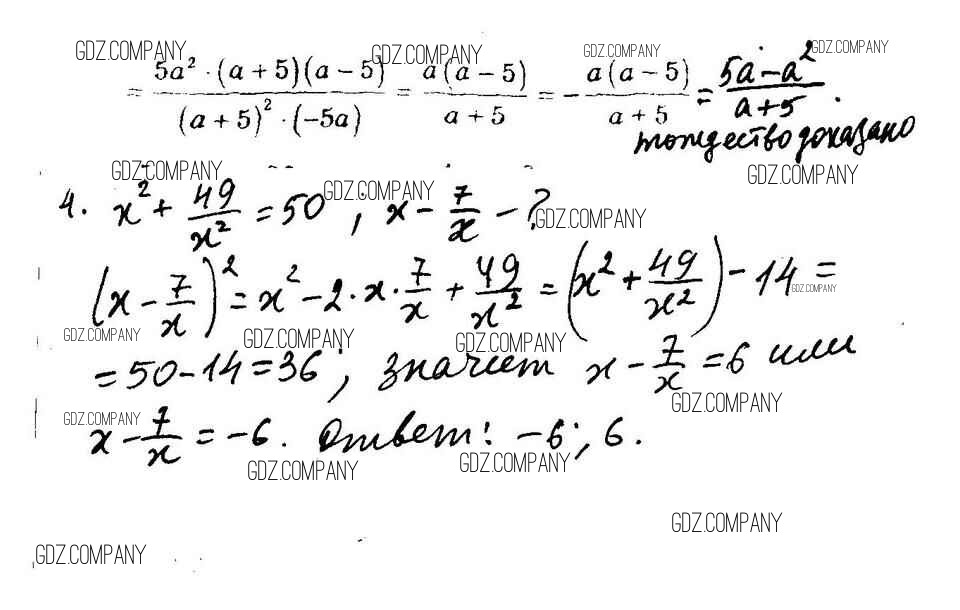 GDZ.COMPANY GDZ.COMPANY GDZ.COMPANY GDZ.COMPANY
= 5a² · (a + 5)(a − 5) / (a + 5)² · (−5a) = a(a − 5) / a + 5 = − a(a − 5) / a + 5 = 5a − a² / a + 5 .
тождество доказано
GDZ.COMPANY GDZ.COMPANY GDZ.COMPANY
4. x² + 49/x² = 50 ; x − 7/x − ?
GDZ.COMPANY
(x − 7/x)² = x² − 2 · x · 7/x + 49/x² = (x² + 49/x²) − 14 =
GDZ.COMPANY
GDZ.COMPANY GDZ.COMPANY GDZ.COMPANY
= 50 − 14 = 36 ; значит x − 7/x = 6 или
GDZ.COMPANY GDZ.COMPANY
x − 7/x = −6. Ответ: −6; 6.
GDZ.COMPANY GDZ.COMPANY
GDZ.COMPANY
GDZ.COMPANY